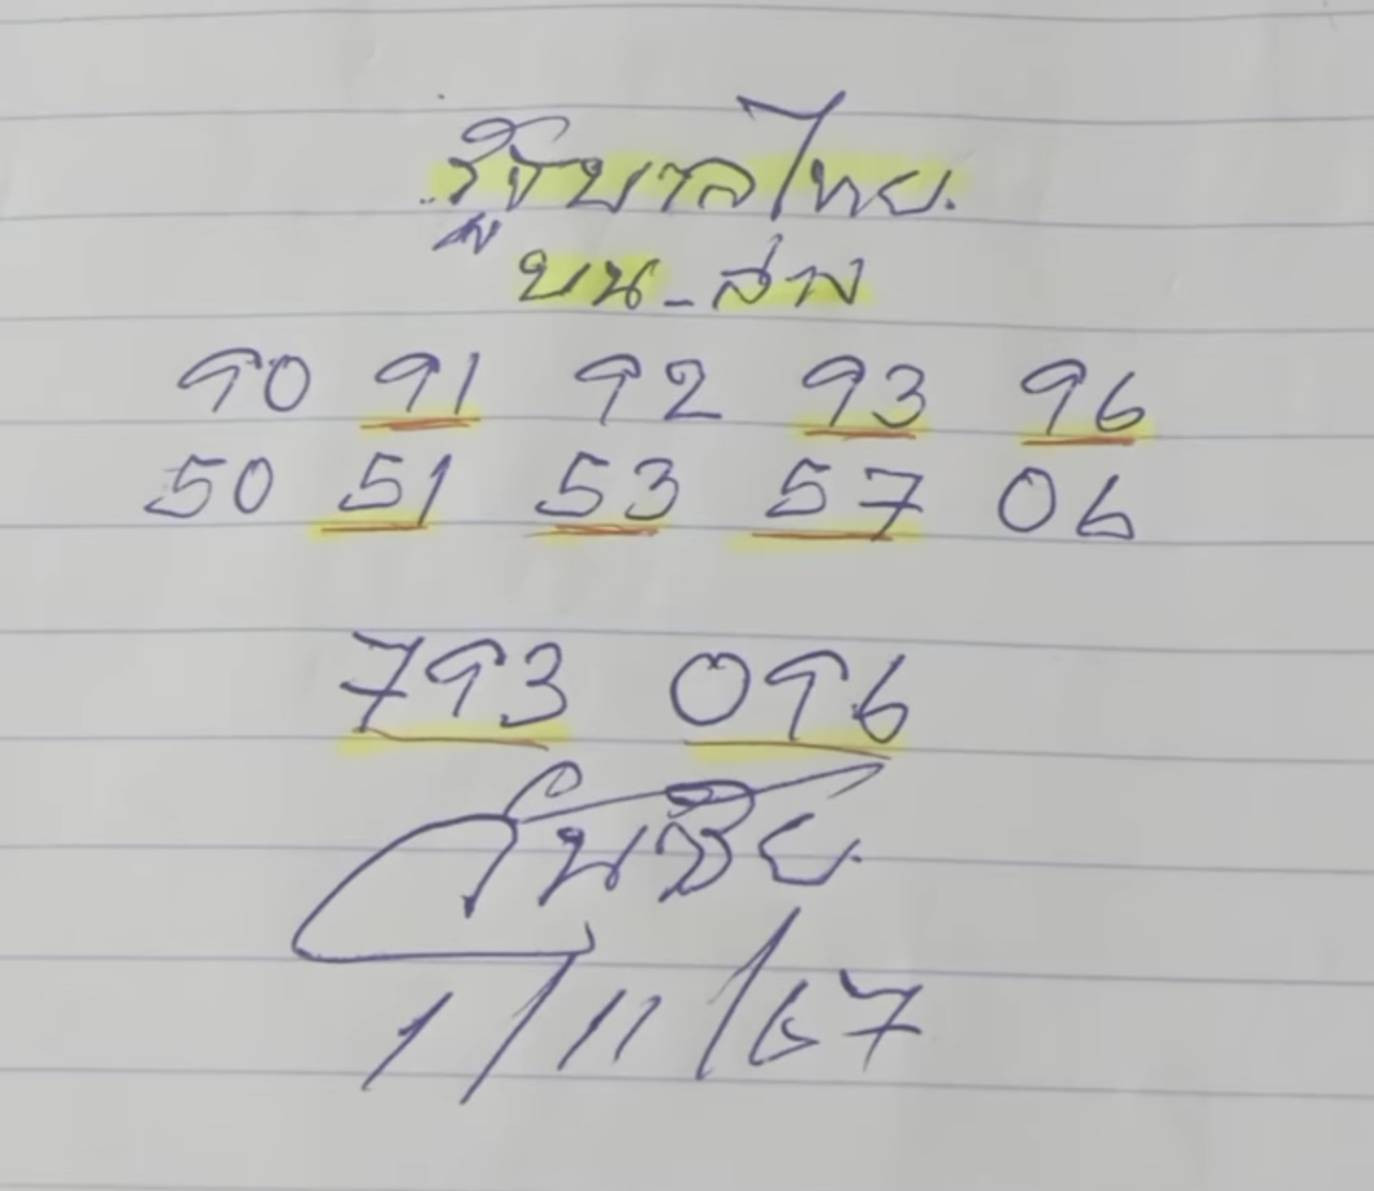 รัฐบาลไทย.
บน-ล่าง
90 91 92 93 96
50 51 53 57 06
793 096
วันชัย.
1/11/67